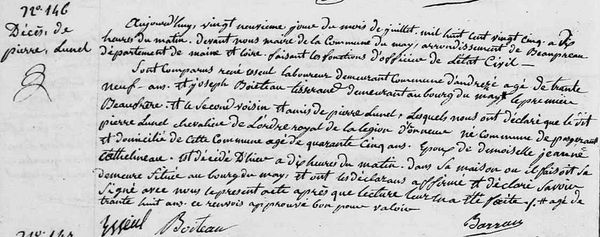 No. 146
Décès, de
pierre, Lunel
Aujourd'huy, vingt neuvième jour du mois de juillet, mil huit cent vingt cinq, a dix
heures du matin, devant nous maire de la Commune du may, arrondissement de Beaupreau
département de maine et loire faisant les fonctions d'officier de l'etat Civil —
Sont Comparus rené esseul laboureur demeurant Commune d'andrezé agé de trante
neuf ans, et joseph Boiteau tisserand demeurant au bourg du may # le premier
Beaufrère et le Second voisin et amis de pierre Lunel, Lesquels nous ont déclaré que le dit
pierre Lunel chevalier de L'ordre royal de la légion d'onneur né Commune de
et domicilié de Cette Commune agé de quarante Cinq ans. Epoux de demoiselle jeanne
Cathelineau est décédé D'hier a dix heures du matin, dans Sa maison ou il faisoit sa
demeure Située au bourg du may, et ont les déclarans affirmé et déclaré Savoir
Signé avec nous le present acte après que lecture leur en a été faite. # agé de
trante huit ans, ce renvois approuvé bon pour valoir
esseul Boiteau Barrau